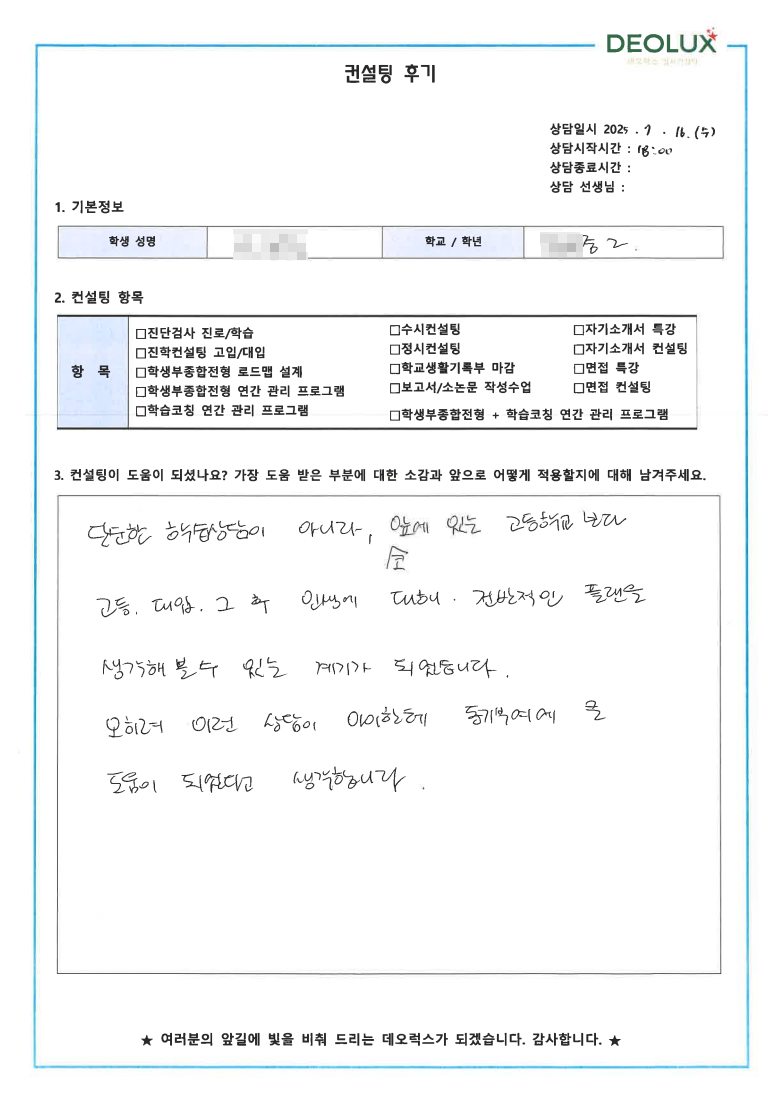 DEOLUX
데오럭스 입시컨설팅
컨설팅 후기
상담일시 2025 . 7 . 16. (수)
상담시작시간 : 18:00
상담종료시간 :
상담 선생님 :
1. 기본정보
학생 성명 학교 / 학년 중 2.
2. 컨설팅 항목
항 목
□진단검사 진로/학습 □수시컨설팅 □자기소개서 특강
□진학컨설팅 고입/대입 □정시컨설팅 □자기소개서 컨설팅
□학생부종합전형 로드맵 설계 □학교생활기록부 마감 □면접 특강
□학생부종합전형 연간 관리 프로그램 □보고서/소논문 작성수업 □면접 컨설팅
□학습코칭 연간 관리 프로그램 □학생부종합전형 + 학습코칭 연간 관리 프로그램
3. 컨설팅이 도움이 되셨나요? 가장 도움 받은 부분에 대한 소감과 앞으로 어떻게 적용할지에 대해 남겨주세요.
단순한 학습상담이 아니라, 앞에 있는 고등학교 보다
코
고등. 대입. 그 후 인생에 대해. 전반적인 플랜을
생각해 볼 수 있는 계기가 되었습니다.
오히려 이런 상담이 아이한테 동기부여에 큰
도움이 되었다고 생각합니다.
★ 여러분의 앞길에 빛을 비춰 드리는 데오럭스가 되겠습니다. 감사합니다. ★